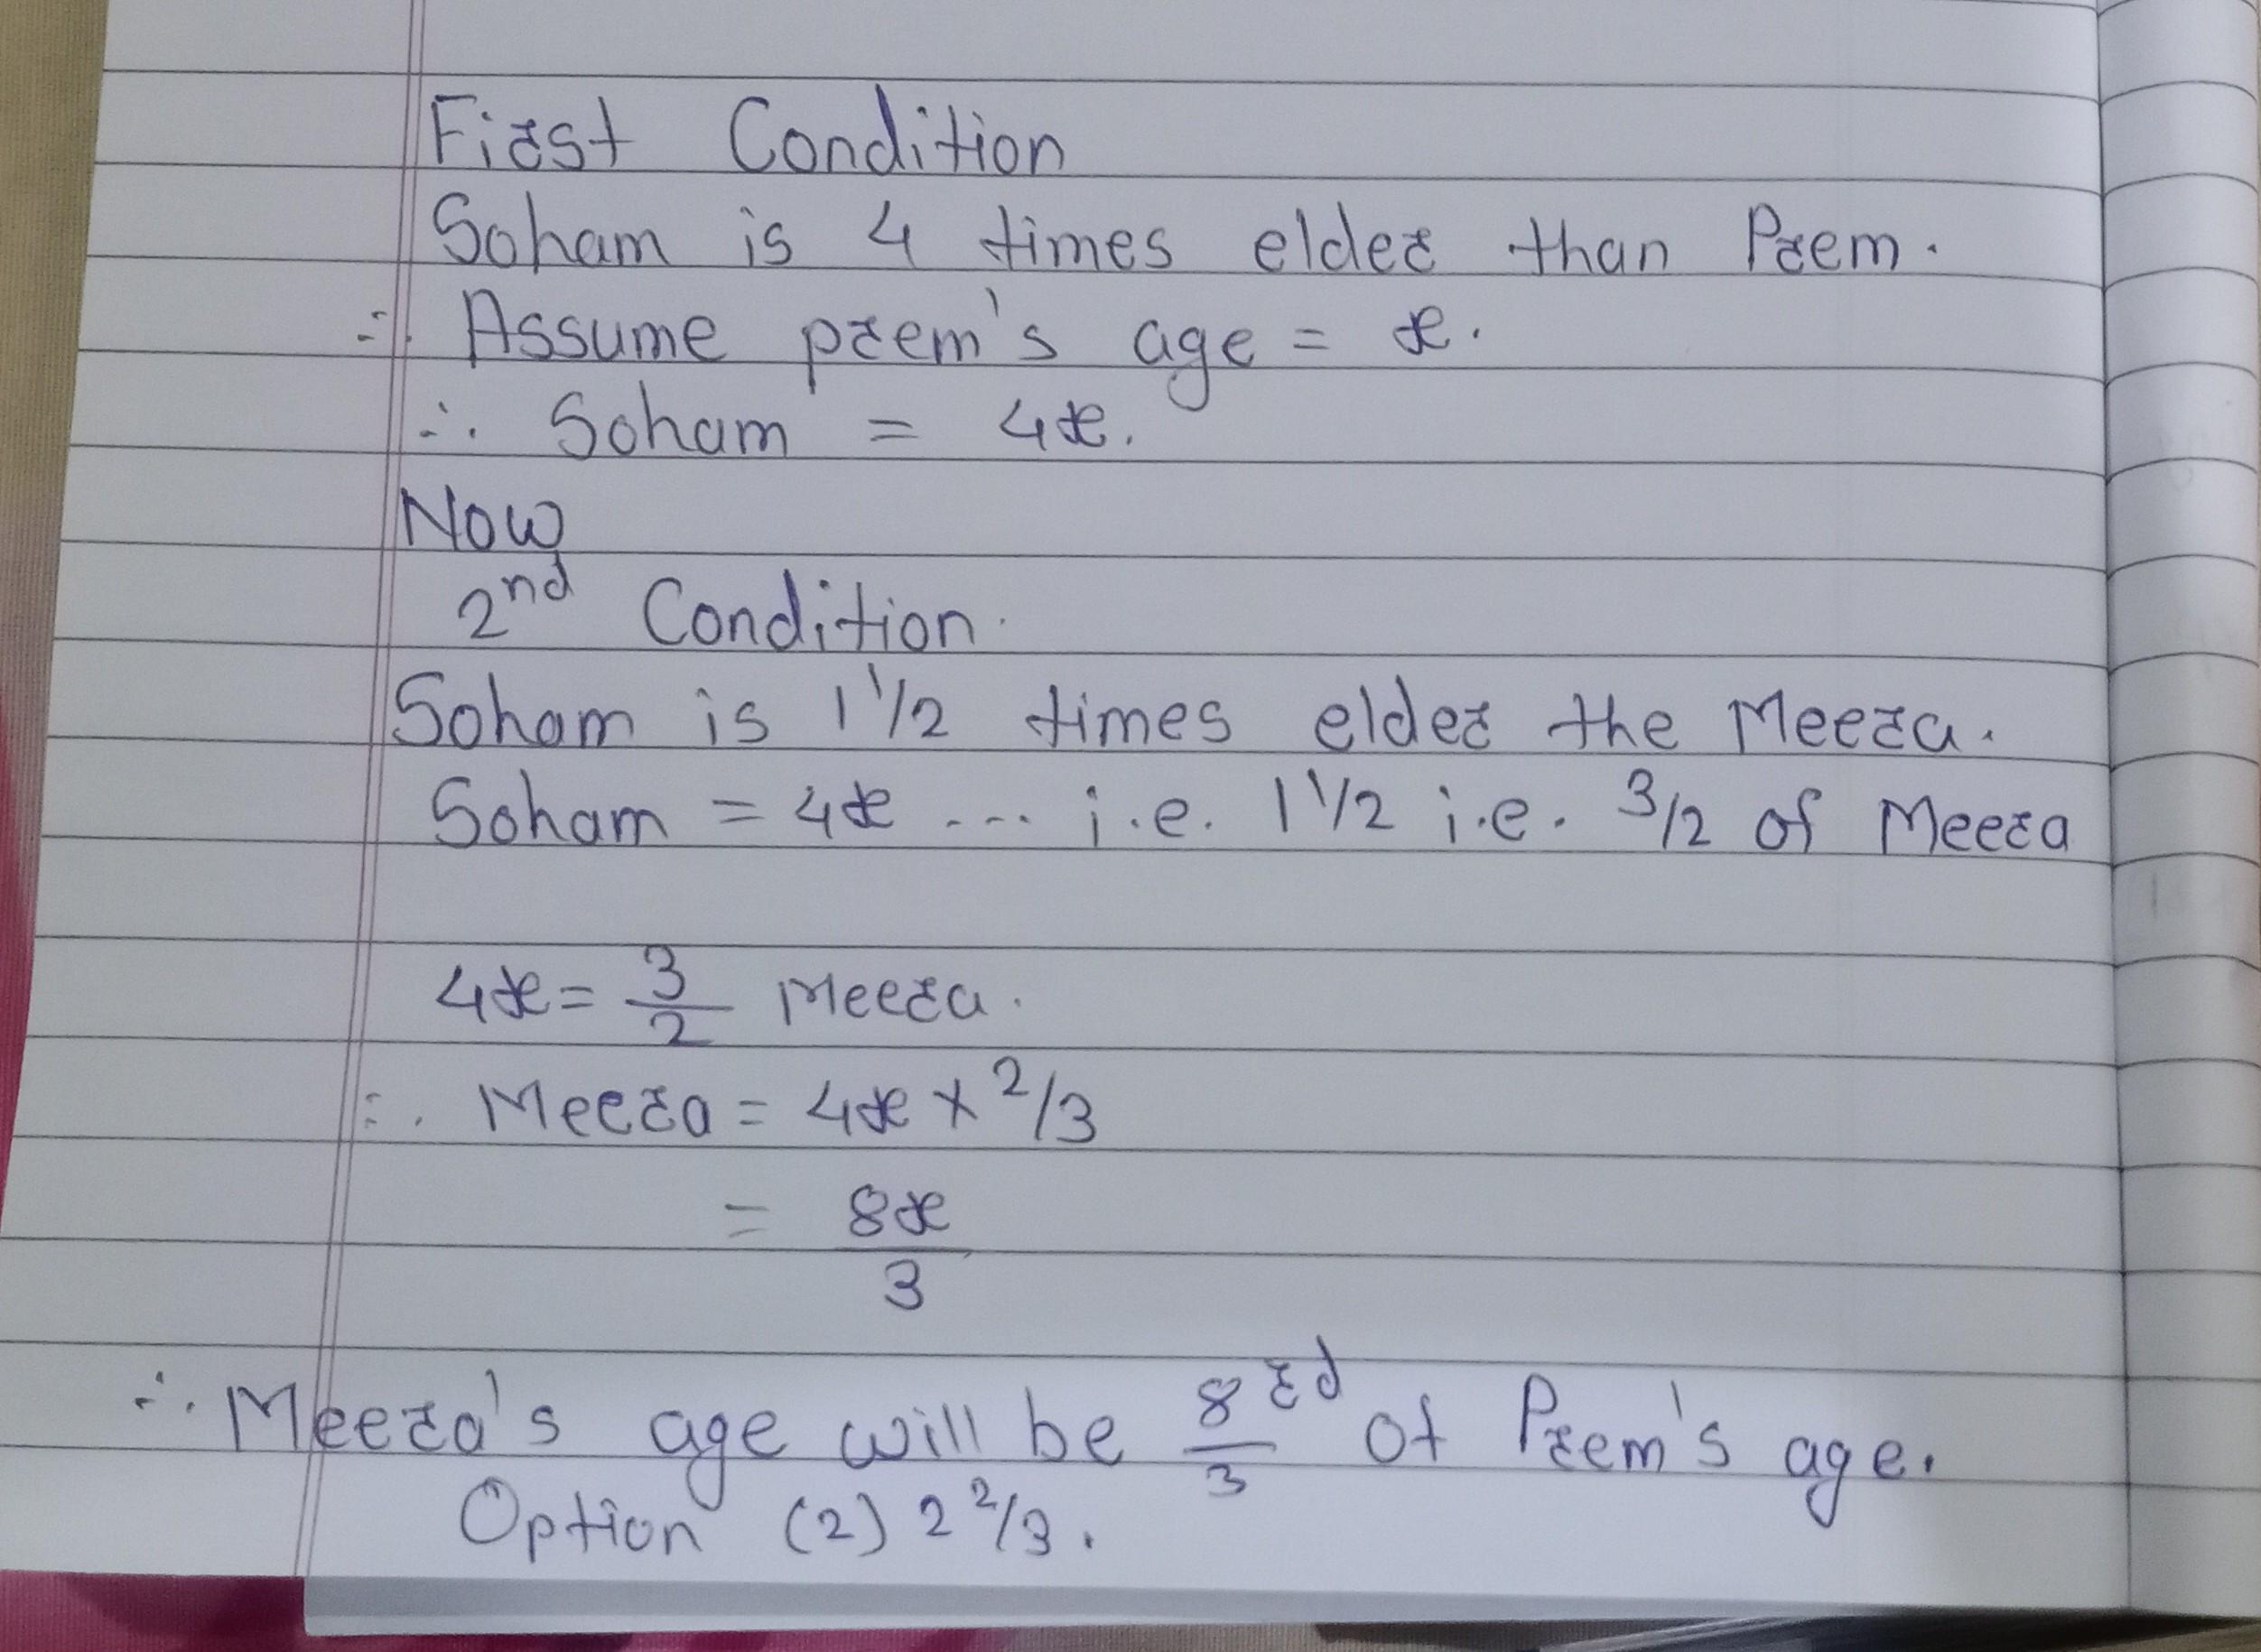 First Condition
Soham is 4 times elder than Prem.
∴ Assume prem's age = x.
∴ Soham = 4x.
Now
2nd Condition.
Soham is 1 1/2 times elder the Meera.
Soham = 4x ... i.e. 1 1/2 i.e. 3/2 of Meera
4x = 3/2 Meera.
∴ Meera = 4x × 2/3
= 8x/3
∴ Meera's age will be 8/3 rd of Prem's age.
Option (2) 2 2/3.